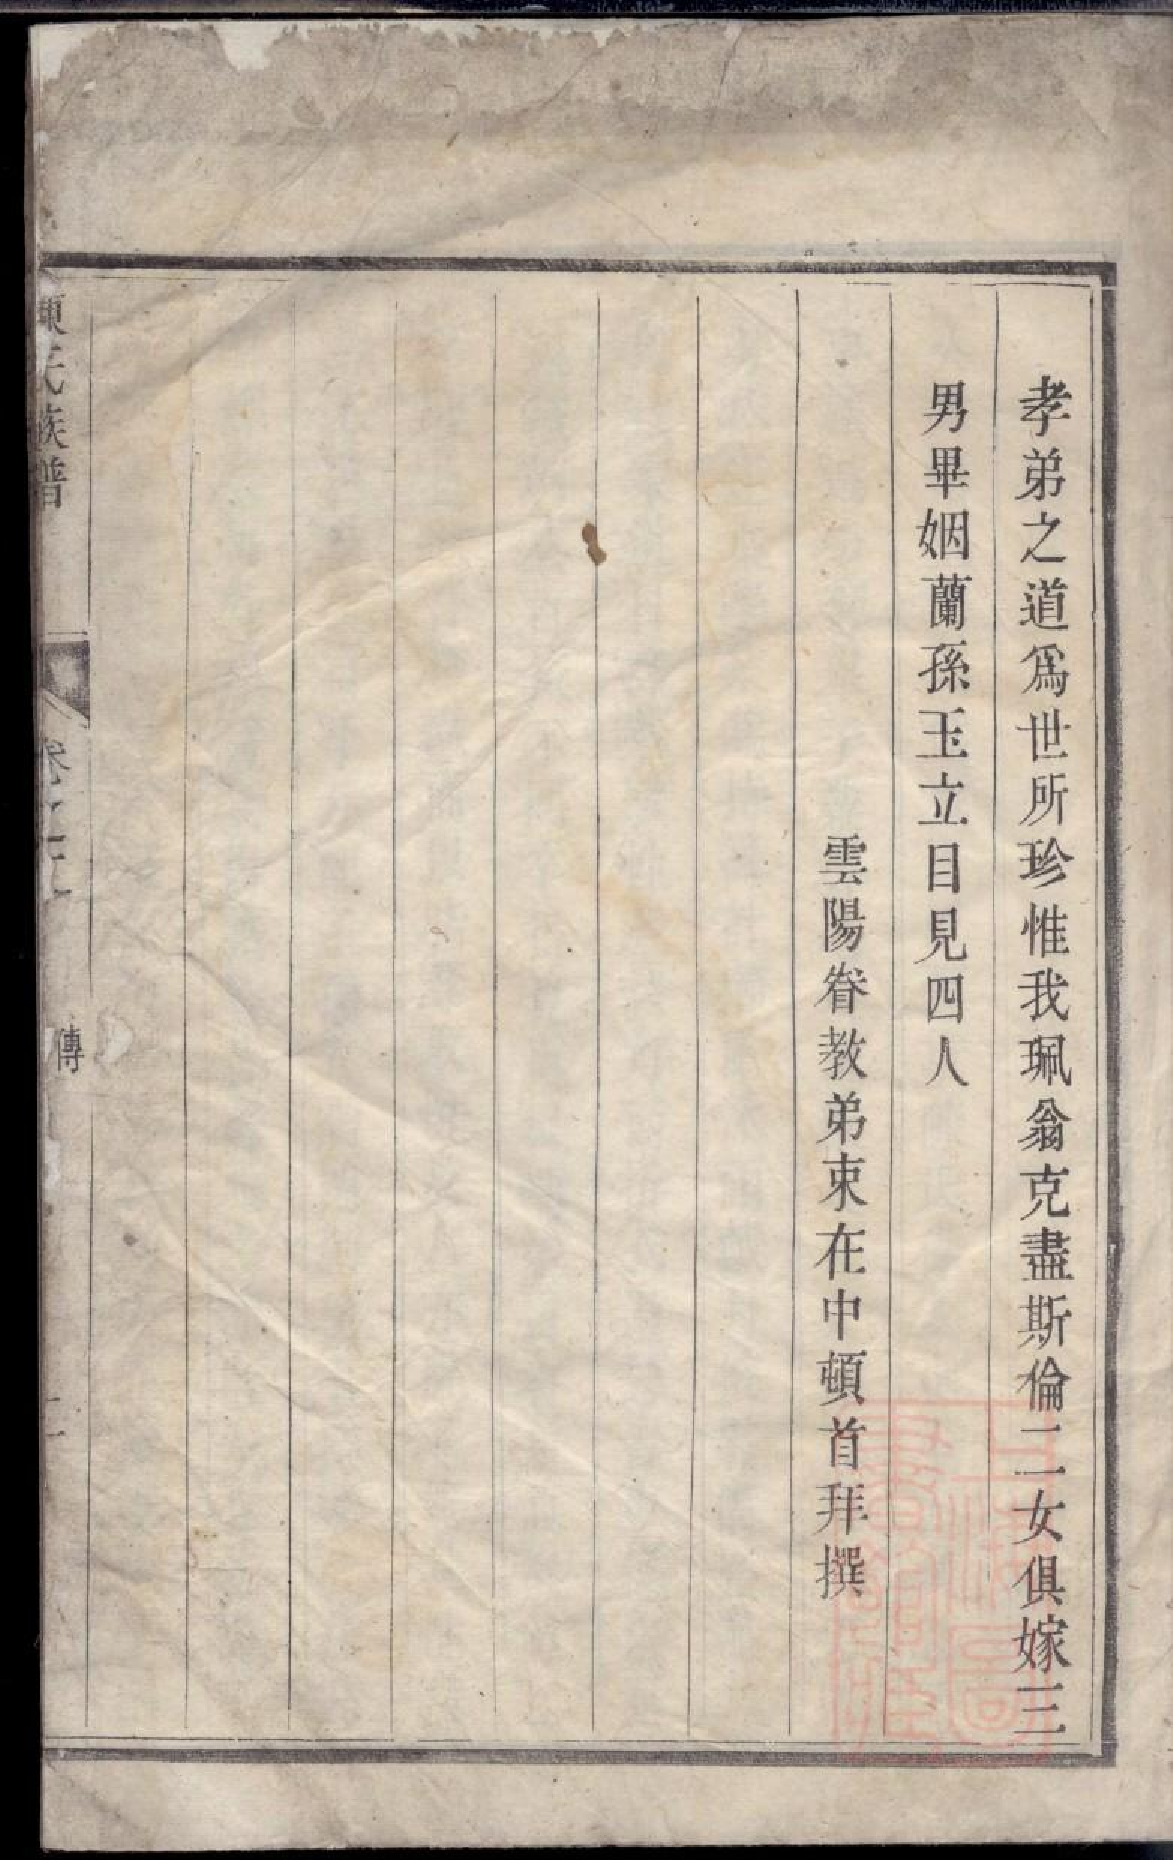 孝弟之道爲世所珍惟我珮翁克盡斯倫二女俱嫁三
男畢姻蘭孫玉立目見四人
雲陽眷教弟束在中頓首拜撰
陳氏族譜
卷之二
傳
二
上海圖書館藏